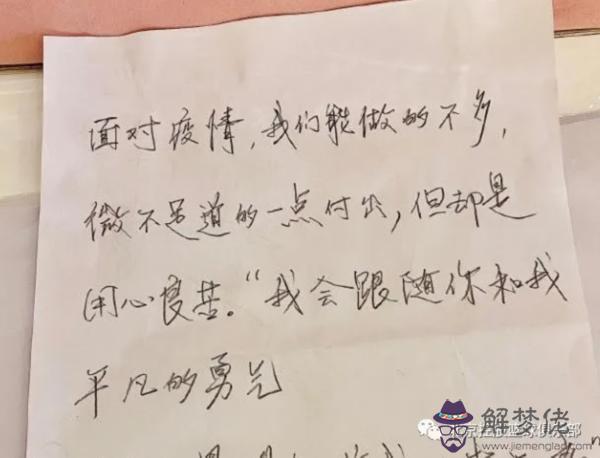 面对疫情，我们能做的不多，
微不足道的一点付出，但却是
用心良苦。“我会跟随你和我
平凡的勇气
解梦佬
www.jiemenglao.com